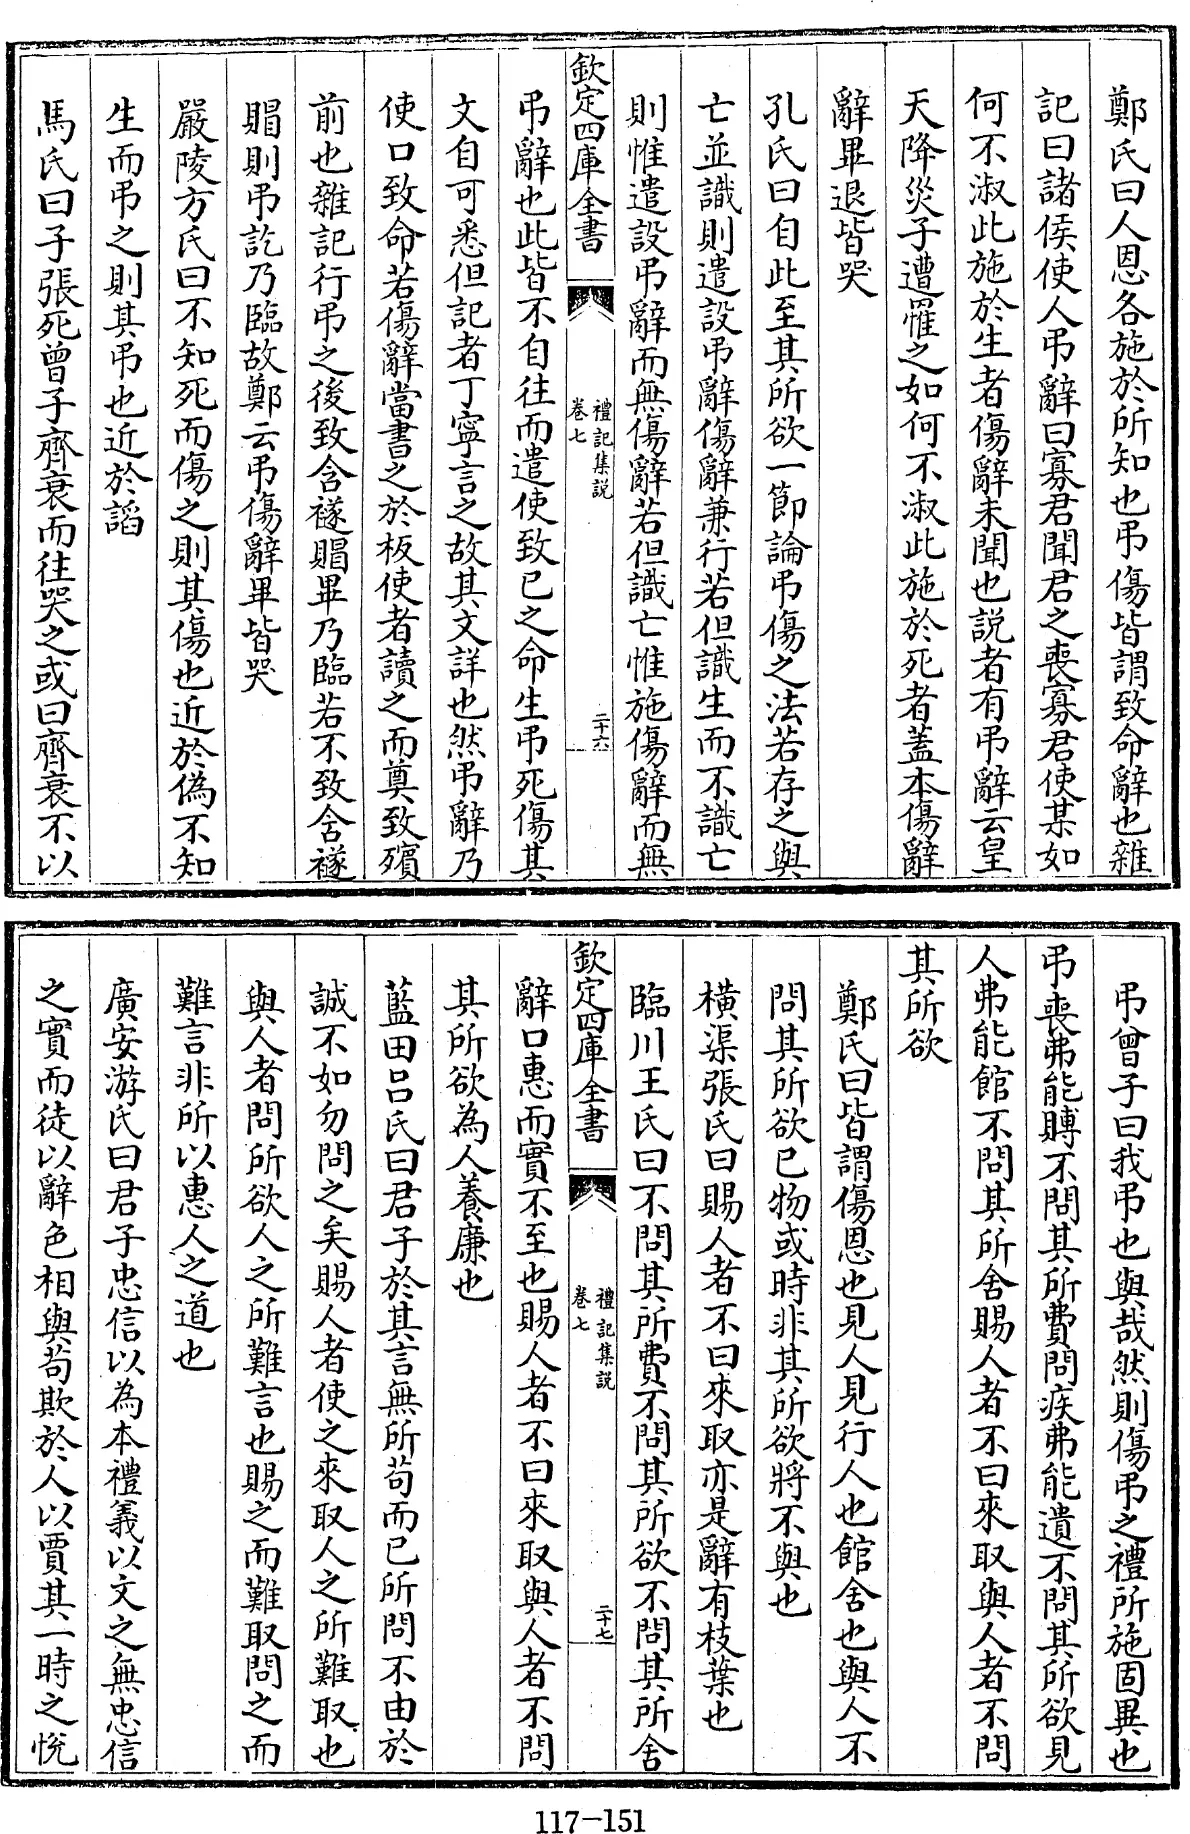 鄭氏曰人恩各施於所知也弔傷皆謂致命辭也雜
記曰諸侯使人弔辭曰寡君聞君之喪寡君使某如
何不淑此施於生者傷辭未聞也説者有弔辭云皇
天降災子遭罹之如何不淑此施於死者蓋本傷辭
辭畢退皆哭
孔氏曰自此至其所欲一節論弔傷之法若存之與
亡並識則遣設弔辭傷辭兼行若但識生而不識亡
則惟遣設弔辭而無傷辭若但識亡惟施傷辭而無
欽定四庫全書
禮記集説
卷七
二十六
弔辭也此皆不自往而遣使致已之命生弔死傷其
文自可悉但記者丁寧言之故其文詳也然弔辭乃
使口致命若傷辭當書之於板使者讀之而奠致殯
前也雜記行弔之後致含襚賵畢乃臨若不致含襚
賵則弔訖乃臨故鄭云弔傷辭畢皆哭
嚴陵方氏曰不知死而傷之則其傷也近於偽不知
生而弔之則其弔也近於諂
馬氏曰子張死曾子齊衰而往哭之或曰齊衰不以
弔曾子曰我弔也與哉然則傷弔之禮所施固異也
弔喪弗能賻不問其所費問疾弗能遺不問其所欲見
人弗能館不問其所舍賜人者不曰來取與人者不問
其所欲
鄭氏曰皆謂傷恩也見人見行人也館舍也與人不
問其所欲已物或時非其所欲將不與也
橫渠張氏曰賜人者不曰來取亦是辭有枝葉也
臨川王氏曰不問其所費不問其所欲不問其所舍
欽定四庫全書
禮記集説
卷七
二十七
辭口惠而實不至也賜人者不曰來取與人者不問
其所欲為人養廉也
藍田呂氏曰君子於其言無所苟而已所問不由於
誠不如勿問之矣賜人者使之來取人之所難取也
與人者問所欲人之所難言也賜之而難取問之而
難言非所以惠人之道也
廣安游氏曰君子忠信以為本禮義以文之無忠信
之實而徒以辭色相與苟欺於人以賈其一時之悅
117-151